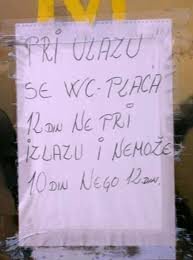 M
PRI ULAZU
SE WC-PLAĆA
12 DIN NE PRI
IZLAZU I NEMOŽE
10 DIN. NEGO 12 DIN.